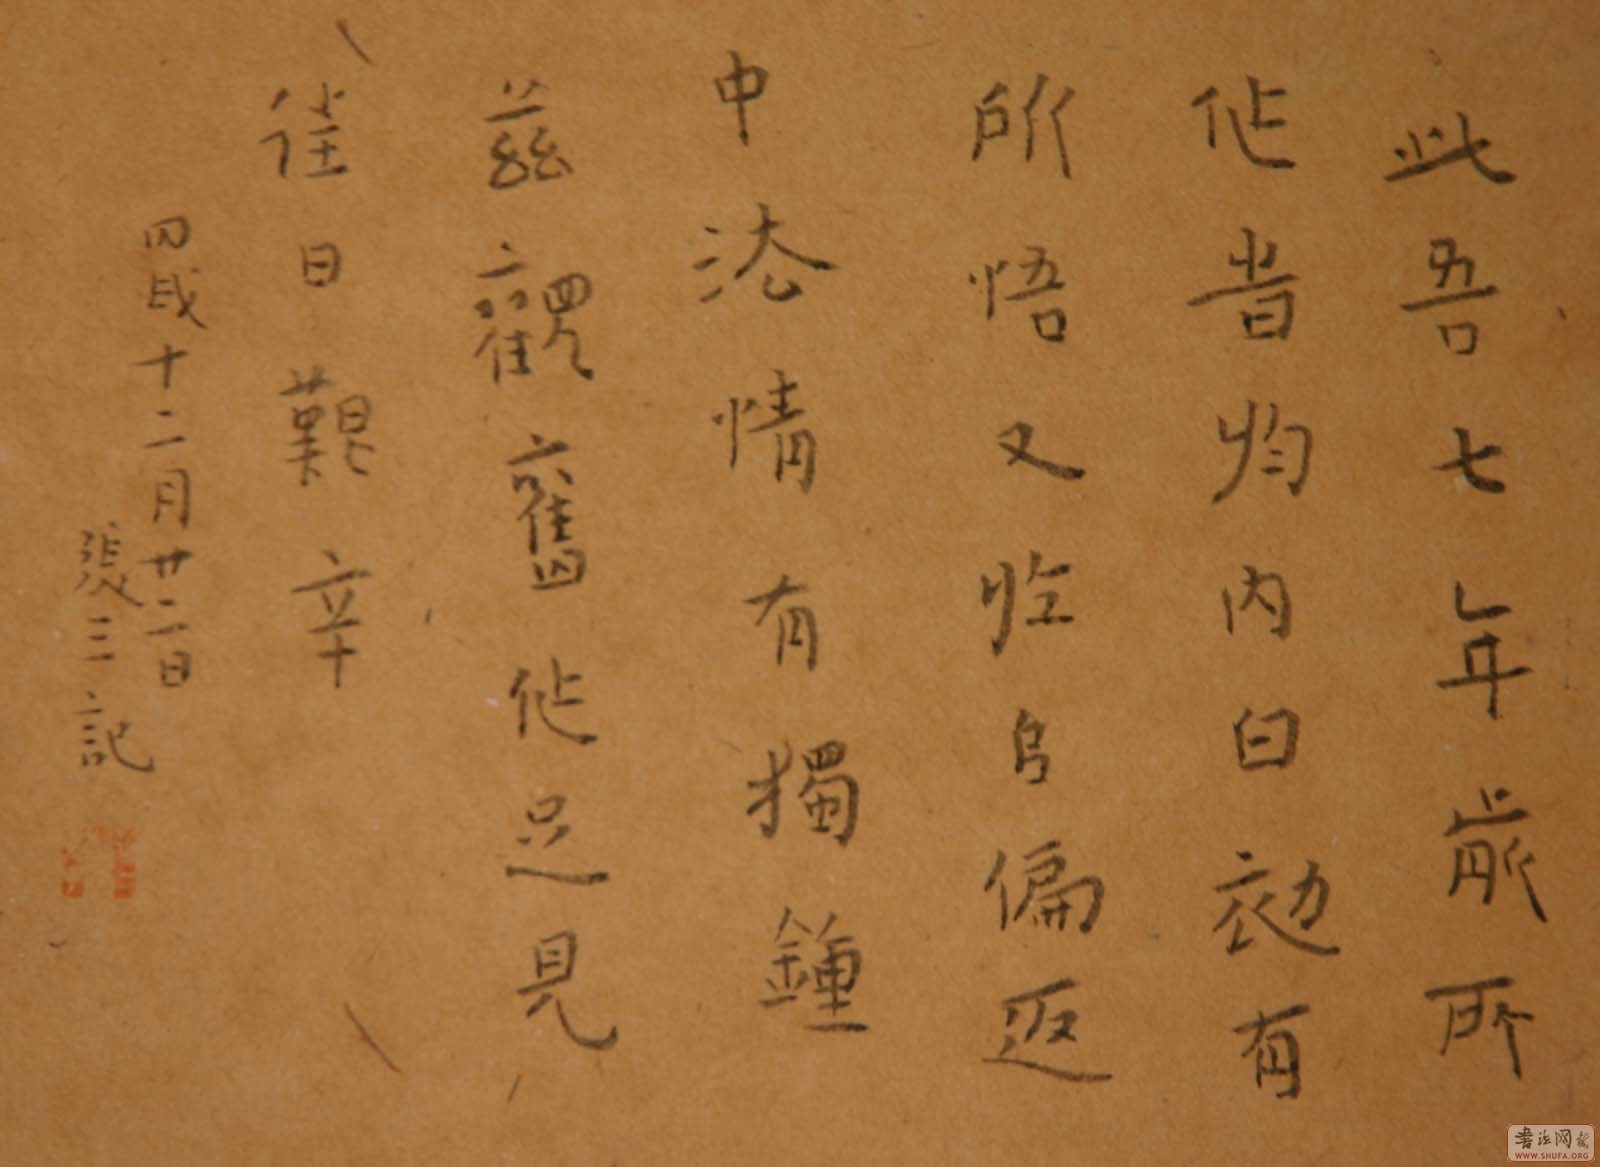 此吾七年前所
作者均内有
所悟又临偏返
中法情有獨鍾
茲觀舊作足見
往日艱辛
丙戌十二月廿二日
張三記
書法网
WWW.SHUFA.ORG